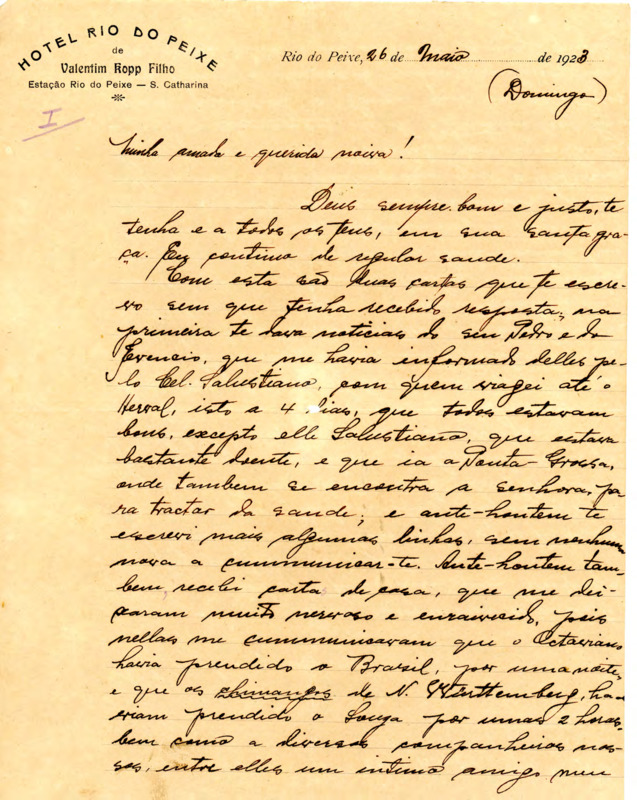 HOTEL RIO DO PEIXE
de
Valentim Kopp Filho
Estação Rio do Peixe — S. Catharina
Rio do Peixe, 26 de Maio de 1923
(Domingo)
I
Minha amada e querida noiva!
Deus sempre bom e justo, te
tenha e a todos os teus, em sua santa gra-
ça. Eu continuo de regular saude.
Com esta são duas cartas que te escre-
vo sem que tenha recebido resposta; na
primeira te dava noticias do seu Pedro e do
Evencio, que me havia informado delles pe-
lo Cel. Salustiano, com quem viagei até o
Herval, isto a 4 dias, que todos estavam
bons, excepto elle Salustiano, que estava
bastante doente, e que ia a Ponta-Grossa,
onde tambem se encontra a senhora, pa-
ra tractar da saude; e ante-hontem te
escrevi mais algumas linhas, sem nenhuma
nova a cummunicar-te. Ante-hontem tam-
bem recebi carta de casa, que me dei-
xaram muito nervoso e enraivecido, pois
nellas me cummunicavam que o Octaviano
havia prendido o Brasil, por uma noite,
e que os chimangos de N. Württemberg, ha-
viam prendido o Souza por umas 2 horas,
bem como a diversos companheiros nos-
sos, entre elles um intimo amigo meu